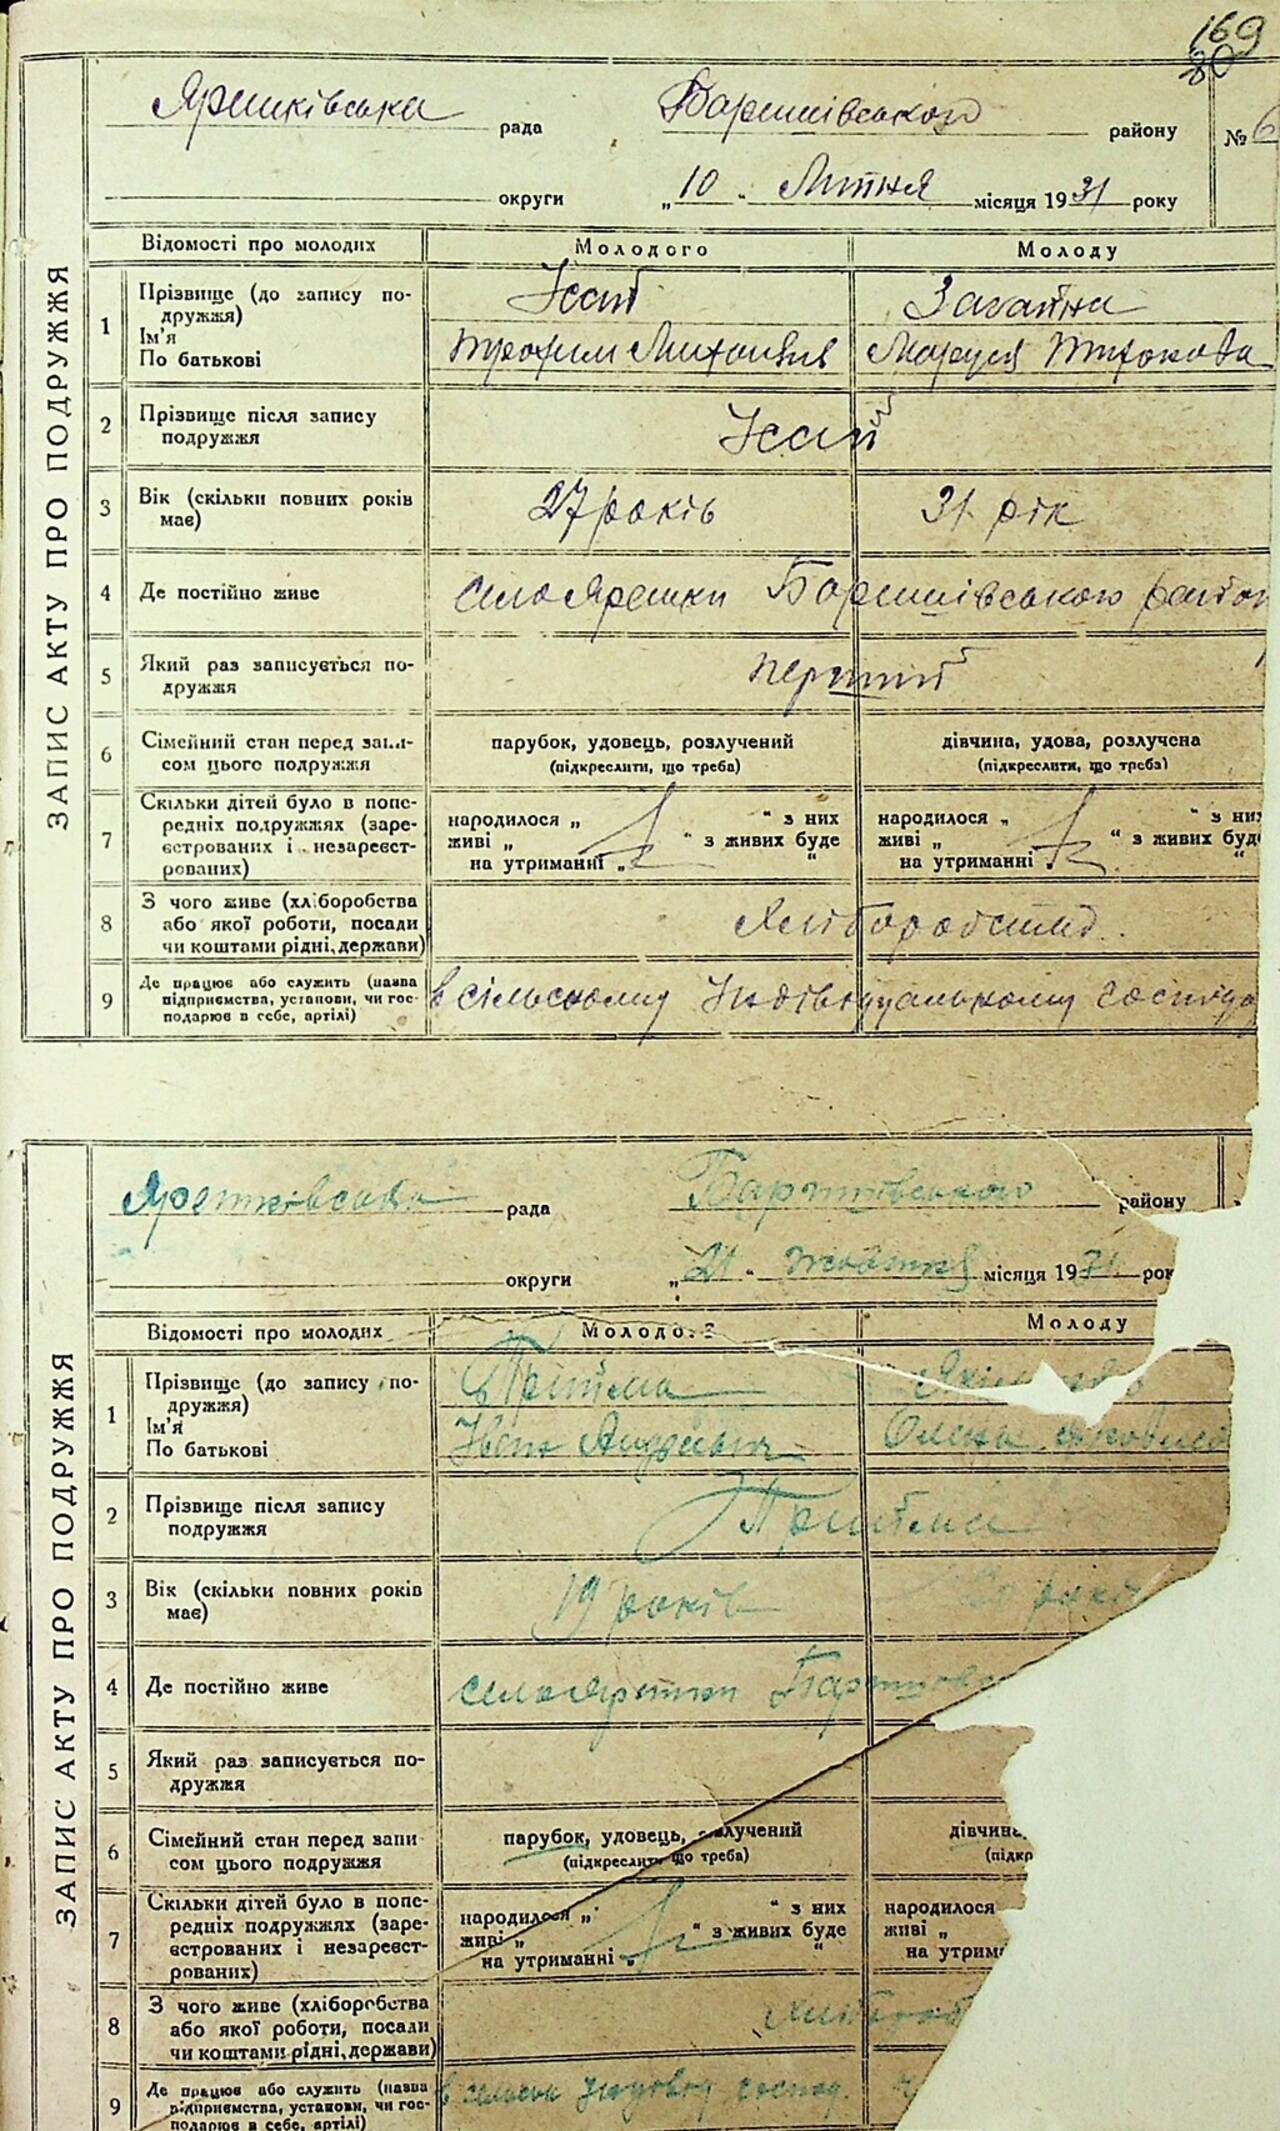 169
80
Ярешківська рада Баришівського району № 6
округи „10" Липня місяця 1931 року
ЗАПИС АКТУ ПРО ПОДРУЖЖЯ
Відомості про молодих Молодого Молоду
1 Прізвище (до запису по-
дружжя)
Ім'я
По батькові
Ісай
Трохим Михайлів Маруся Тихонова
2 Прізвище після запису
подружжя
Ісай
3 Вік (скільки повних років
має)
27 років 31 рік
4 Де постійно живе село Ярешки Баришівського район
5 Який раз записується по-
дружжя
перший
6 Сімейний стан перед запи-
сом цього подружжя
парубок, удовець, розлучений дівчина, удова, розлучена
(підкреслити, що треба) (підкреслити, що треба)
7 Скільки дітей було в попе-
редніх подружжях (заре-
єстрованих і незареєст-
рованих)
народилося „ " з них народилося „ " з них
живі „ " з живих буде живі „ " з живих буде
на утриманні „ " на утриманні „ "
8 З чого живе (хліборобства
або якої роботи, посади
чи коштами рідні, держави)
Хліборобства
9 Де працює або служить (назва
підприємства, установи, чи гос-
подарює в себе, артілі)
в сільському Індівідуальному господа
Ярешківська рада Баришівського району
округи „21" Жовтня місяця 1931 рок
ЗАПИС АКТУ ПРО ПОДРУЖЖЯ
Відомості про молодих Молодого Молоду
1 Прізвище (до запису по-
дружжя)
Ім'я
По батькові
Прийма
Іван Андрійович Олена
2 Прізвище після запису
подружжя
Прийма
3 Вік (скільки повних років
має)
19 років років
4 Де постійно живе село Ярешки Баришівс
5 Який раз записується по-
дружжя
6 Сімейний стан перед запи
сом цього подружжя
парубок, удовець, розлучений дівчина,
(підкреслить що треба) (підкр
7 Скільки дітей було в попе-
редніх подружжях (заре-
єстрованих і незареєст-
рованих)
народилося „ " з них народилося
живі „ " з живих буде живі „
на утриманні „ " на утрим
8 З чого живе (хліборобства
або якої роботи, посади
чи коштами рідні, держави)
Хлібороб
9 Де працює або служить (назва
підприємства, установи, чи гос-
подарює в себе, артілі)
в господ.